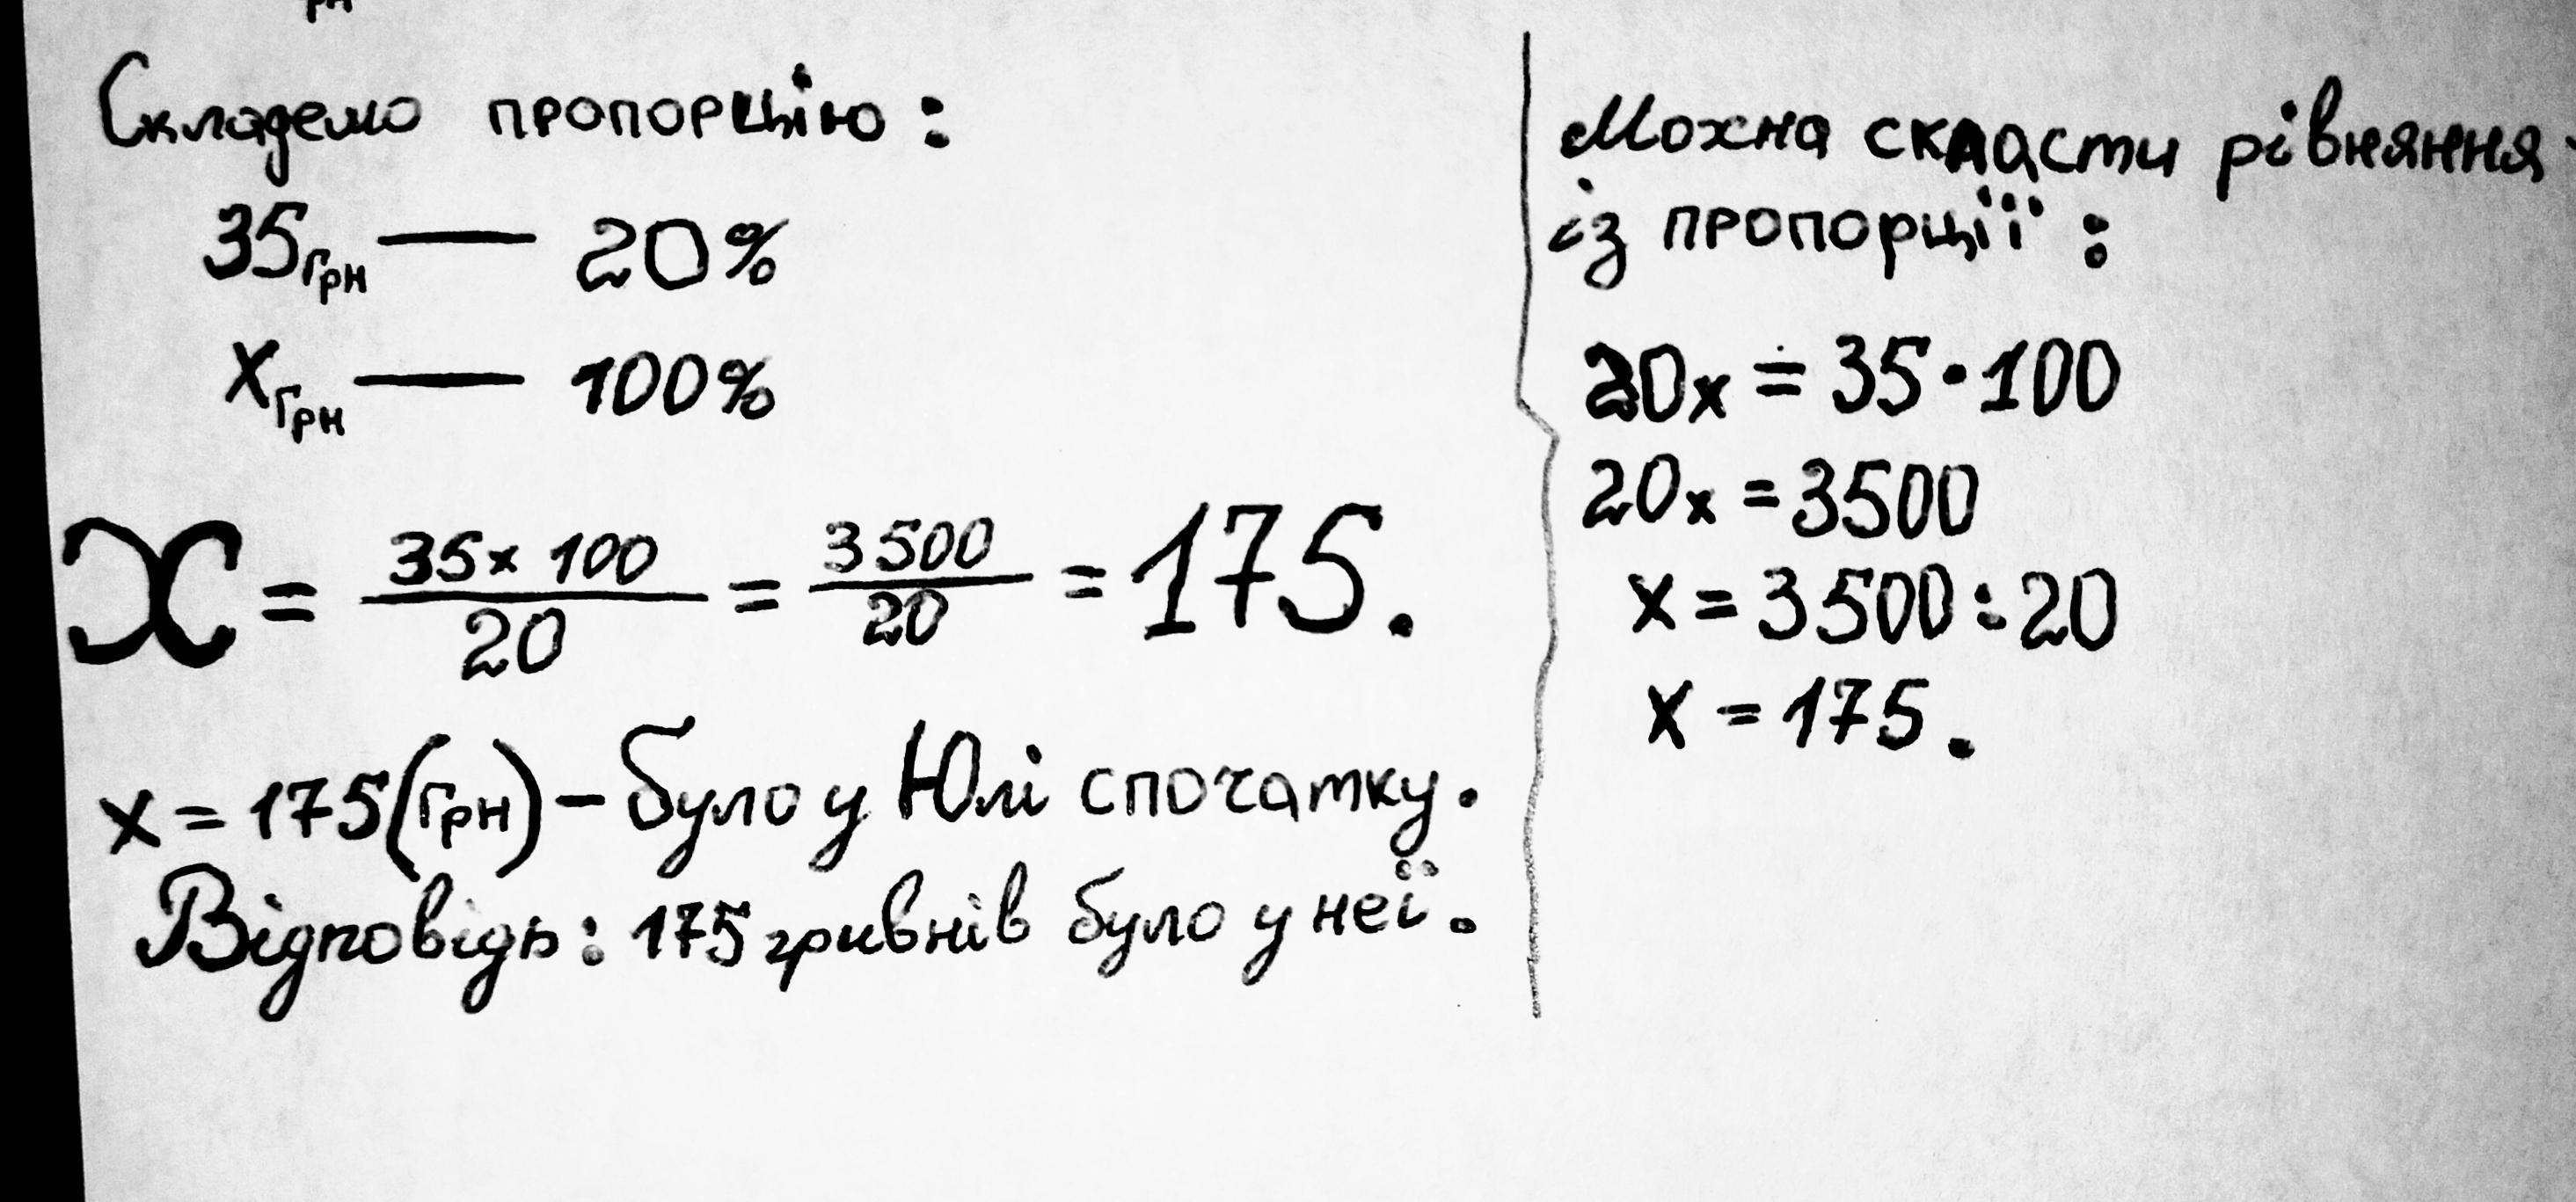 Складемо пропорцію:
35грн — 20%
xгрн — 100%
x = 35 x 100 / 20 = 3500 / 20 = 175.
x = 175 (грн) – було у Юлі спочатку.
Відповідь: 175 гривнів було у неї.
Можна скласти рівняння
із пропорції:
20x = 35 · 100
20x = 3500
x = 3500 : 20
x = 175.